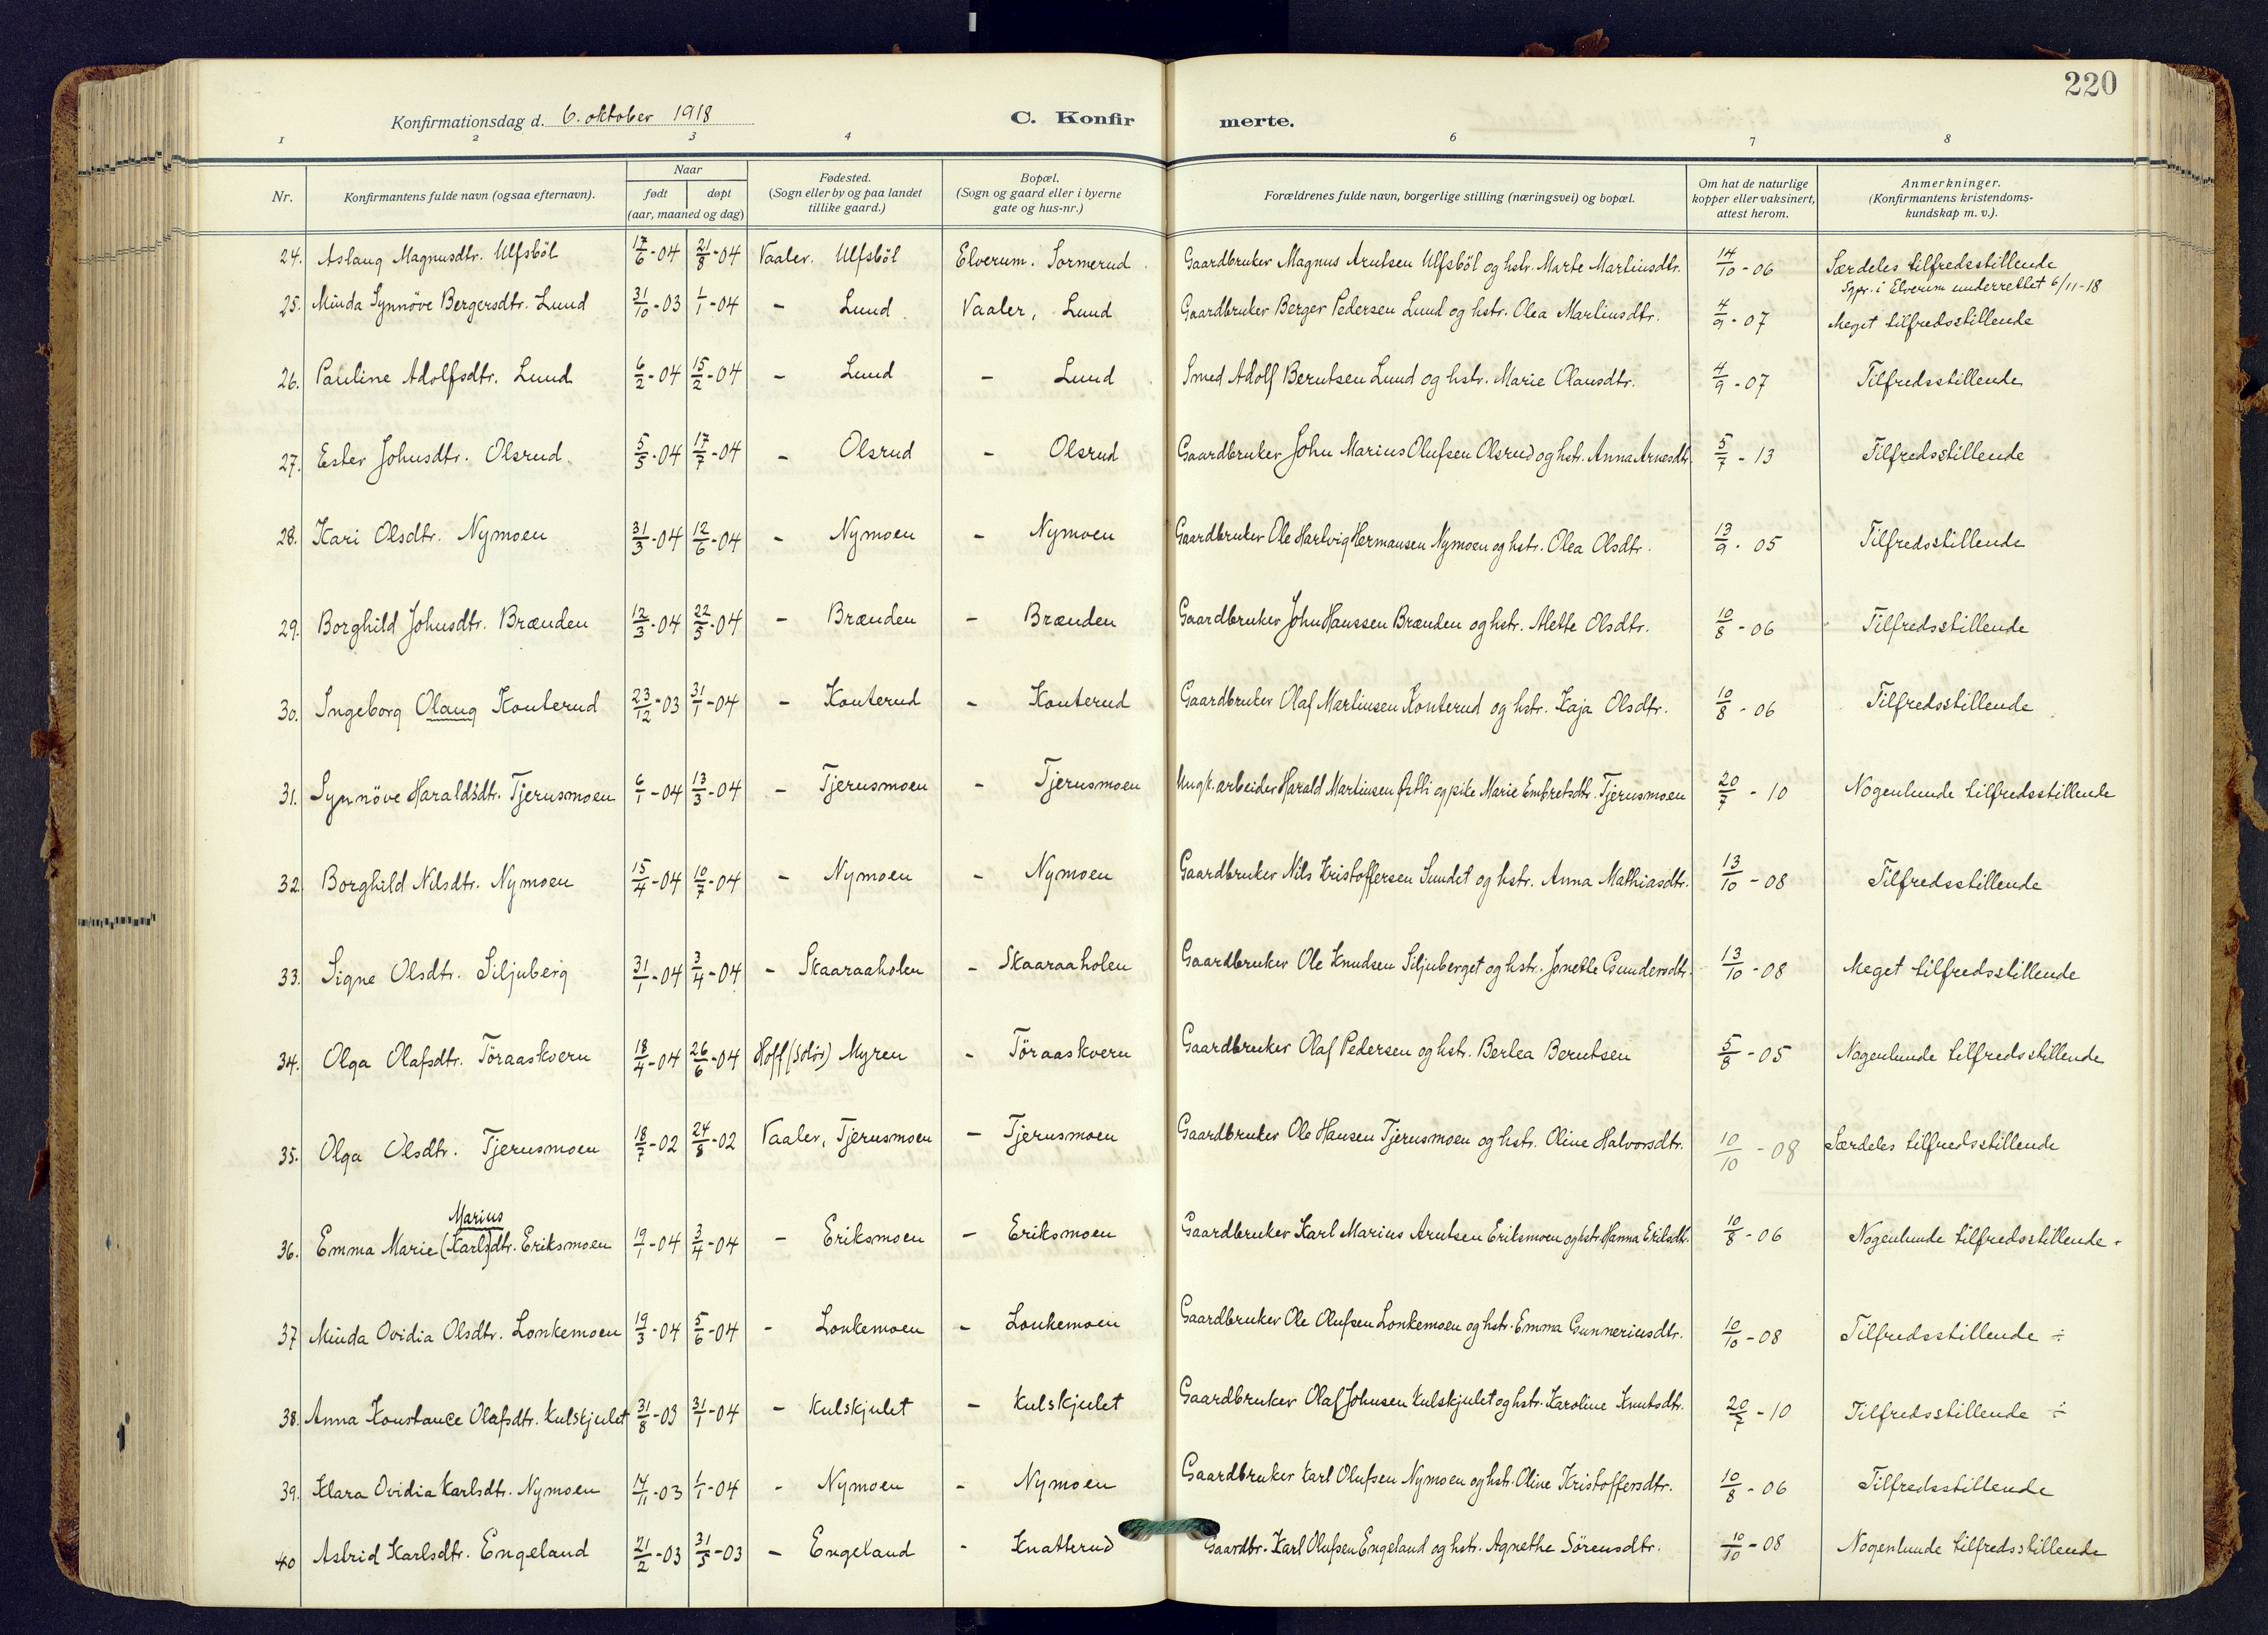 220
Konfirmationsdag d. 6. oktober 1918 C. Konfirmerte.
1 2 3 4 6 7 8
Nr. Konfirmantens fulde navn (ogsaa efternavn). Naar født døpt (aar, maaned og dag) Fødested. (Sogn eller by og paa landet tillike gaard.) Bopæl. (Sogn og gaard eller i byerne gate og hus-nr.) Forældrenes fulde navn, borgerlige stilling (næringsvei) og bopæl. Om hat de naturlige kopper eller vaksinert, attest herom. Anmerkninger. (Konfirmantens kristendoms-kundskap m. v.).
24. Aslaug Magnusdtr. Ulfsböl 17/6-04 21/8-04 Vaaler. Ulfsböl Elverum. Sormerud Gaardbruker Magnus Arntsen Ulfsböl og hstr. Marte Martinsdtr. 14/10-06 Særdeles tilfredsstillende
Sgpr. i Elverum underrettet 6/11-18
25. Minda Synnöve Bergersdtr. Lund 31/10-03 1/1-04 - Lund Vaaler, Lund Gaardbruker Berger Pedersen Lund og hstr. Olea Martinsdtr. 4/9-07 Meget tilfredsstillende
26. Pauline Adolfsdtr. Lund 6/2-04 15/2-04 - Lund - Lund Smed Adolf Berntsen Lund og hstr. Marie Olausdtr. 4/9-07 Tilfredsstillende
27. Ester Johnsdtr. Olsrud 5/5-04 17/7-04 - Olsrud - Olsrud Gaardbruker John Marius Olufsen Olsrud og hstr. Anna Arnesdtr. 5/7-13 Tilfredsstillende
28. Kari Olsdtr. Nymoen 31/3-04 12/6-04 - Nymoen - Nymoen Gaardbruker Ole Hartvig Hermansen Nymoen og hstr. Olea Olsdtr. 13/9-05 Tilfredsstillende
29. Borghild Johnsdtr. Brænden 12/3-04 22/5-04 - Brænden - Brænden Gaardbruker John Hanssen Brænden og hstr. Alette Olsdtr. 10/8-06 Tilfredsstillende
30. Ingeborg Olaug Konterud 23/12-03 31/1-04 - Konterud - Konterud Gaardbruker Olaf Martinsen Konterud og hstr. Kaja Olsdtr. 10/8-06 Tilfredsstillende
31. Synnöve Haraldsdtr. Tjerusmoen 6/1-04 13/3-04 - Tjerusmoen - Tjerusmoen Ungk. arbeider Harald Martinsen Østli og pike Marie Embretsdtr. Tjerusmoen 20/7-10 Nogenlunde tilfredsstillende
32. Borghild Nilsdtr. Nymoen 15/4-04 10/7-04 - Nymoen - Nymoen Gaardbruker Nils Kristoffersen Sundet og hstr. Anna Mathiasdtr. 13/10-08 Tilfredsstillende
33. Signe Olsdtr. Siljuberg 31/1-04 3/4-04 - Skaaraaholen - Skaaraaholen Gaardbruker Ole Knudsen Siljuberget og hstr. Jonette Gundersdtr. 13/10-08 Meget tilfredsstillende
34. Olga Olafsdtr. Töraaskvern 18/4-04 26/6-04 Hoff (Solør) Myren - Töraaskvern Gaardbruker Olaf Pedersen og hstr. Bertea Berntsen 5/8-05 Nogenlunde tilfredsstillende
35. Olga Olsdtr. Tjerusmoen 18/7-02 24/8-02 Vaaler, Tjerusmoen - Tjerusmoen Gaardbruker Ole Hansen Tjerusmoen og hstr. Oline Halvorsdtr. 10/10-08 Særdeles tilfredsstillende
Marius
36. Emma Marie (Karls)dtr. Eriksmoen 19/1-04 3/4-04 - Eriksmoen - Eriksmoen Gaardbruker Karl Marius Arntsen Eriksmoen og hstr. Hanna Eriksdtr. 10/8-06 Nogenlunde tilfredsstillende -
37 Minda Ovidia Olsdtr. Lonkemoen 19/3-04 5/6-04 - Lonkemoen - Lonkemoen Gaardbruker Ole Olufsen Lonkemoen og hstr. Emma Gunneriusdtr. 10/10-08 Tilfredsstillende ÷
38. Anna Konstance Olafsdtr. Kulskjulet 31/8-03 31/1-04 - Kulskjulet - Kulskjulet Gaardbruker Olaf Johnsen Kulskjulet og hstr. Karoline Knutsdtr. 20/7-10 Tilfredsstillende ÷
39. Klara Ovidia Karlsdtr. Nymoen 14/11-03 1/1-04 - Nymoen - Nymoen Gaardbruker Karl Olufsen Nymoen og hstr. Oline Kristoffersdtr. 10/8-06 Tilfredsstillende
40 Astrid Karlsdtr. Engeland 21/2-03 31/5-03 - Engeland - Knatterud Gaardbr. Karl Olufsen Engeland og hstr. Agnethe Sörensdtr. 10/10-08 Nogenlunde tilfredsstillende